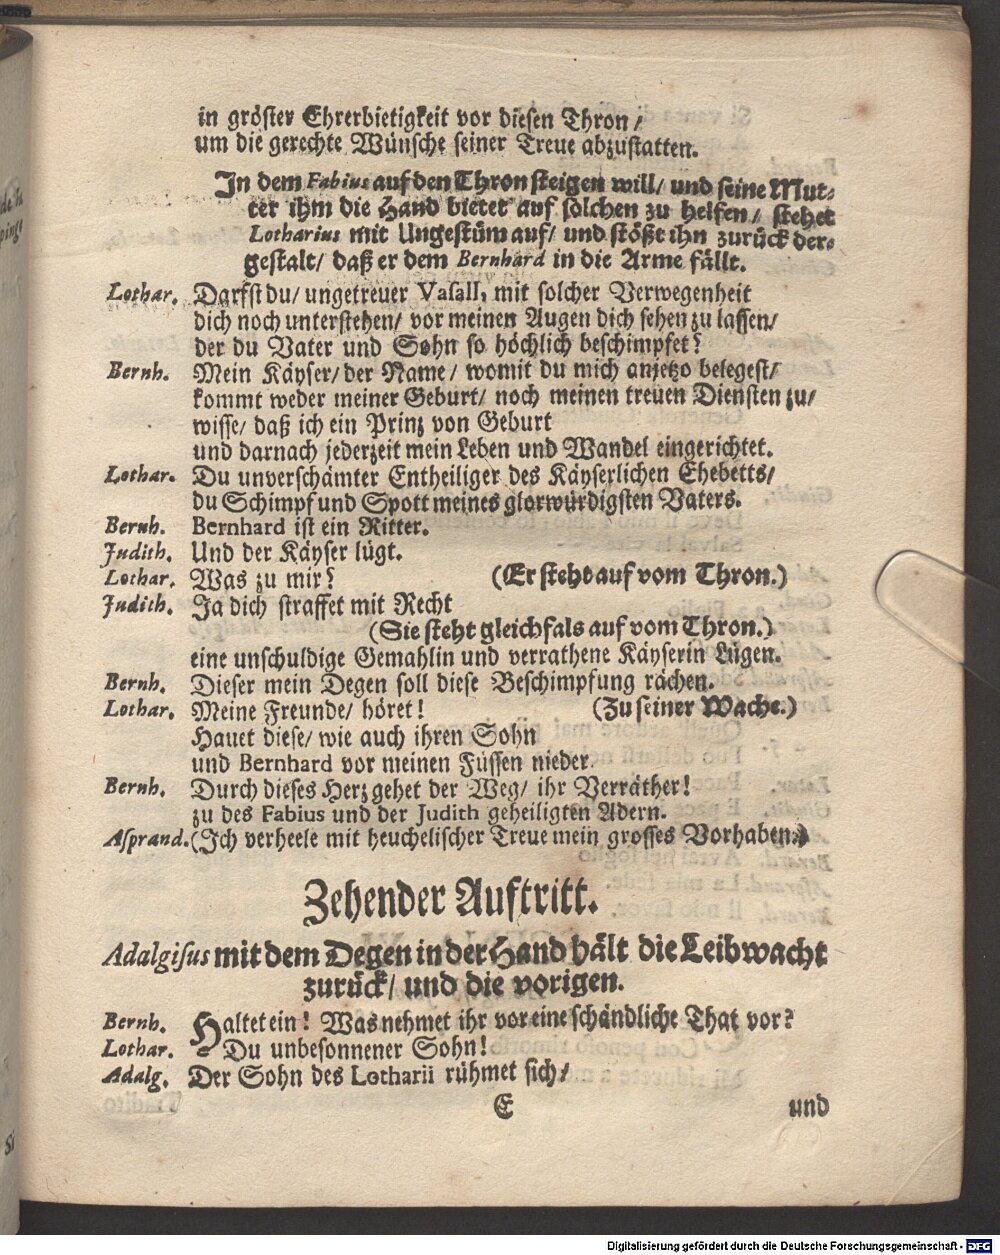 in gröster Ehrerbietigkeit vor diesen Thron /
um die gerechte Wünsche seiner Treue abzustatten.
In dem Fabius auf den Thron steigen will / und seine Mut-
ter ihm die Hand bietet auf solchen zu helfen / stehet
Lotharius mit Ungestüm auf / und stößt ihn zurück der-
gestalt / daß er dem Bernhard in die Arme fällt.
Lothar. Darfst du / ungetreuer Vasall, mit solcher Verwegenheit
dich noch unterstehen / vor meinen Augen dich sehen zu lassen /
der du Vater und Sohn so höchlich beschimpfet?
Bernh. Mein Käyser / der Name / womit du mich anjetzo belegest /
kommt weder meiner Geburt / noch meinen treuen Diensten zu /
wisse / daß ich ein Prinz von Geburt
und darnach jederzeit mein Leben und Wandel eingerichtet.
Lothar. Du unverschämter Entheiliger des Käyserlichen Ehebetts /
du Schimpf und Spott meines glorwürdigsten Vaters.
Bernh. Bernhard ist ein Ritter.
Judith. Und der Käyser lügt.
Lothar. Was zu mir? (Er steht auf vom Thron.)
Judith. Ja dich straffet mit Recht
(Sie steht gleichfals auf vom Thron.)
eine unschuldige Gemahlin und verrathene Käyserin Lügen.
Bernh. Dieser mein Degen soll diese Beschimpfung rächen.
Lothar. Meine Freunde / höret! (Zu seiner Wache.)
Hauet diese / wie auch ihren Sohn
und Bernhard vor meinen Füssen nieder.
Bernh. Durch dieses Herz gehet der Weg / ihr Verräther!
zu des Fabius und der Judith geheiligten Adern.
Asprand. (Ich verheele mit heuchelischer Treue mein grosses Vorhaben.)
Zehender Auftritt.
Adalgisus mit dem Degen in der Hand hält die Leibwacht
zurück / und die vorigen.
Bernh. Haltet ein! Was nehmet ihr vor eine schändliche That vor?
Lothar. Du unbesonnener Sohn!
Adalg. Der Sohn des Lotharii rühmet sich /
E und
Digitalisierung gefördert durch die Deutsche Forschungsgemeinschaft - DFG